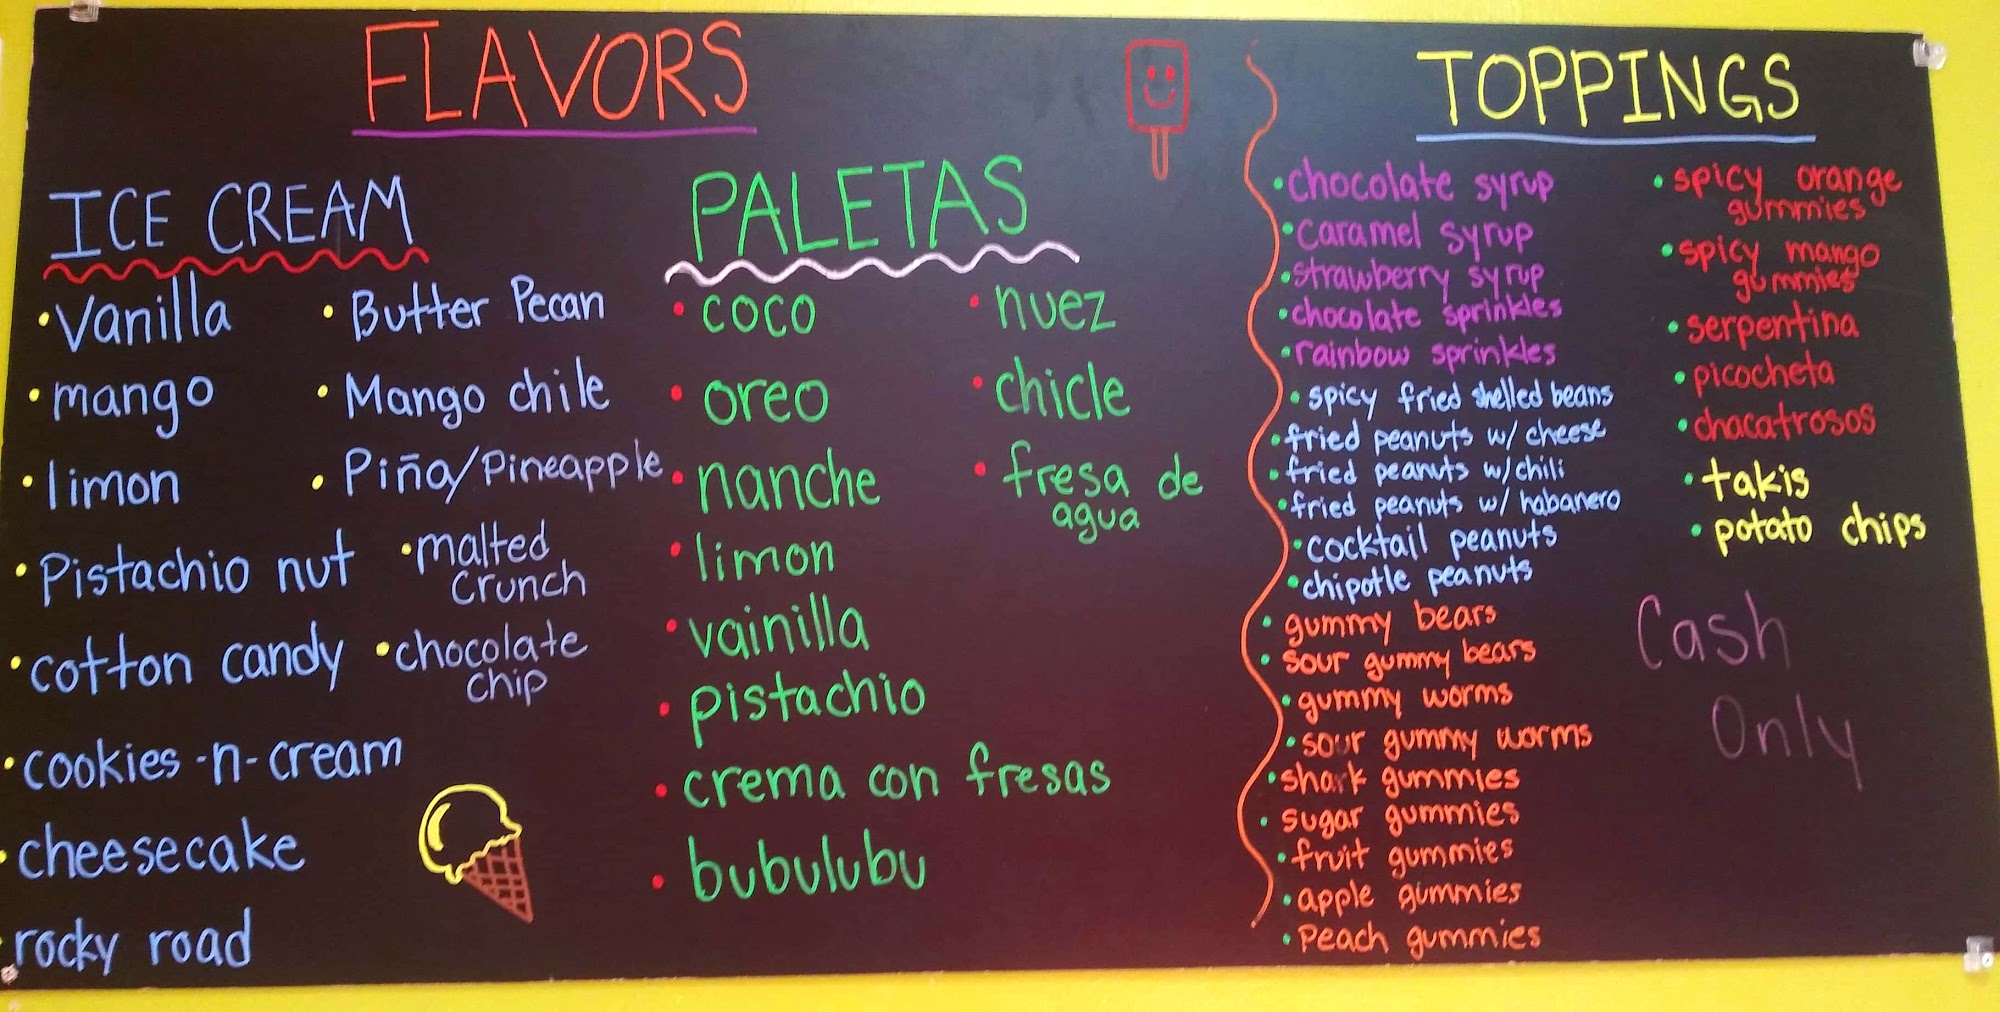 FLAVORS
ICE CREAM
• Vanilla
• mango
• limon
• Pistachio nut
• cotton candy
• cookies -n- cream
• cheesecake
• rocky road
• Butter Pecan
• Mango chile
• Piña/Pineapple
• malted
crunch
• chocolate
chip
PALETAS
• coco
• oreo
• nanche
• limon
• vainilla
• pistachio
• crema con fresas
• bubulubu
• nuez
• chicle
• fresa de
agua
TOPPINGS
• chocolate syrup
• caramel syrup
• strawberry syrup
• chocolate sprinkles
• rainbow sprinkles
• spicy fried shelled beans
• fried peanuts w/ cheese
• fried peanuts w/ chili
• fried peanuts w/ habanero
• cocktail peanuts
• chipotle peanuts
• gummy bears
• sour gummy bears
• gummy worms
• sour gummy worms
• shark gummies
• sugar gummies
• fruit gummies
• apple gummies
• Peach gummies
• spicy orange
gummies
• spicy mango
gummies
• serpentina
• picocheta
• chacatrosos
• takis
• potato chips
Cash
Only